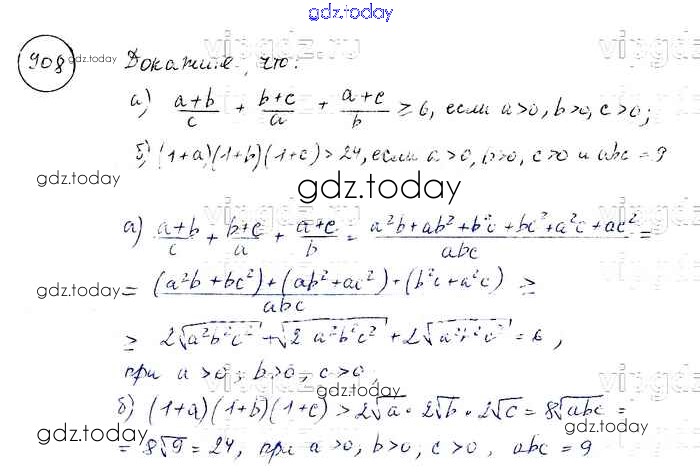 gdz.today
908 Докажите, что:
а) (a+b)/c + (b+c)/a + (a+c)/b ≥ 6, если a>0, b>0, c>0;
б) (1+a)(1+b)(1+c) > 24, если a>0, b>0, c>0 и abc = 9
gdz.today
gdz.today
а) (a+b)/c + (b+c)/a + (a+c)/b = (a²b + ab² + b²c + bc² + a²c + ac²)/abc =
= ((a²b + bc²) + (ab² + ac²) + (b²c + a²c))/abc ≥
gdz.today
≥ 2√a²b²c² + √2 a²b²c² + 2√a²b²c² = 6,
при a>0, b>0, c>0.
gdz.today
б) (1+a)(1+b)(1+c) > 2√a · 2√b · 2√c = 8√abc =
gdz.today
= 8√9 = 24, при a>0, b>0, c>0, abc = 9
gdz.today